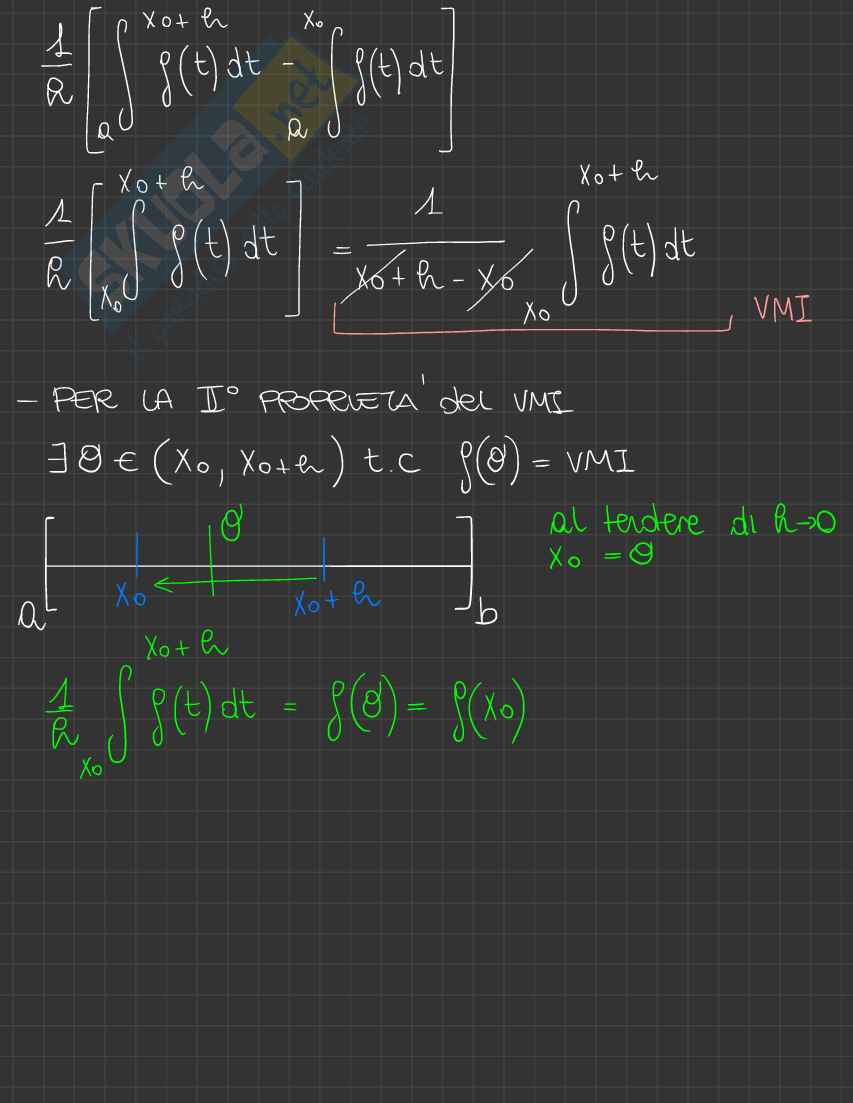 1/h [ ∫_a^{x₀+h} f(t) dt - ∫_a^{x₀} f(t) dt ]
1/h [ ∫_{x₀}^{x₀+h} f(t) dt ] = 1/(x₀+h-x₀) ∫_{x₀}^{x₀+h} f(t) dt VMI
- PER LA II° PROPRIETA' del VMI
∃ θ ∈ (x₀, x₀+h) t.c f(θ) = VMI
θ
al tendere di h→0
x₀ = θ
a x₀ x₀+h b
1/h ∫_{x₀}^{x₀+h} f(t) dt = f(θ) = f(x₀)
SKUOLA.net